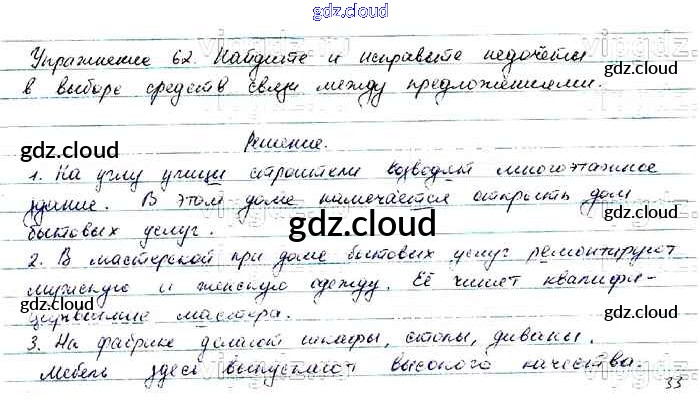 gdz.cloud
Упражнение 62. Найдите и исправьте недочёты
gdz.cloud
в выборе средств связи между предложениями.
gdz.cloud
Решение.
gdz.cloud
1. На углу улицы строители возводят многоэтажное
здание. В этом доме намечается открыть дом
gdz.cloud
бытовых услуг.
2. В мастерской при доме бытовых услуг ремонтируют
мужскую и женскую одежду. Её чистят квалифи-
gdz.cloud gdz.cloud
цированные мастера.
3. На фабрике делают шкафы, столы, диваны.
gdz.cloud
Мебель здесь выпускают высокого качества.
33